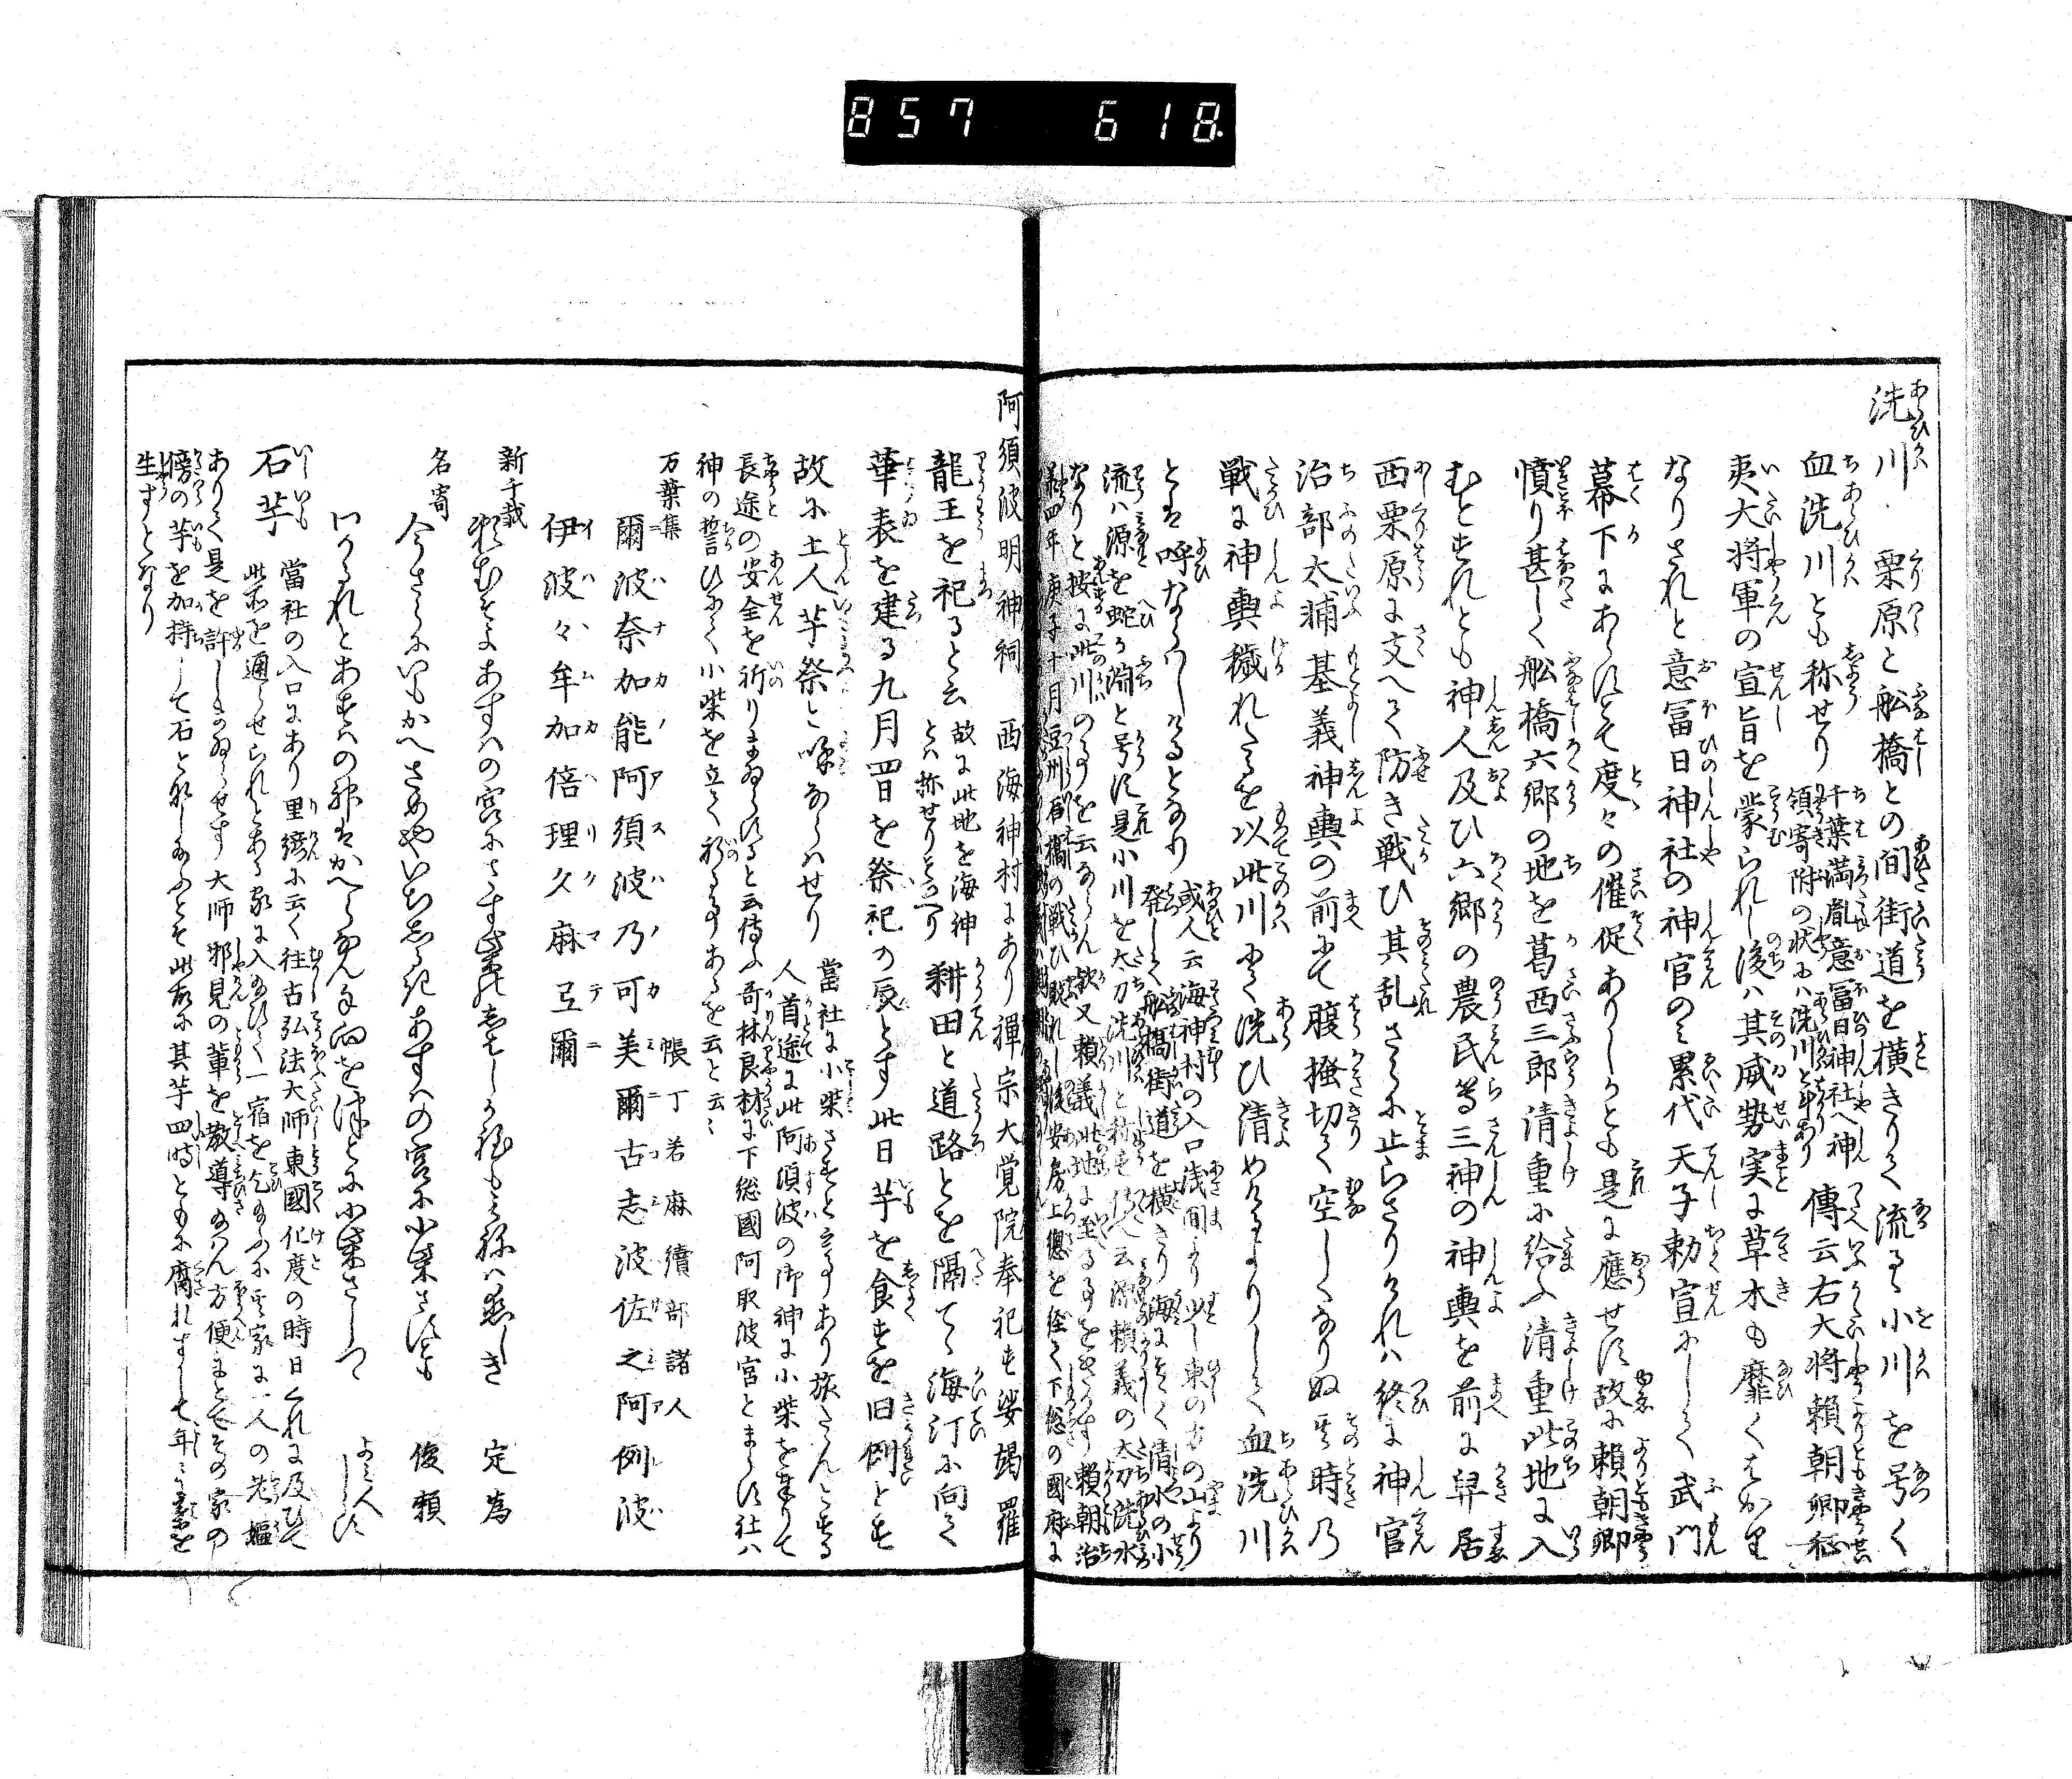 857 618.
洗川　栗原と舩橋との間街道を横きりて流るゝ小川を号く
血洗川とも称せり 千葉満胤意冨日神社へ神
領寄附の状に八洗川と斗あり 傳云右大将頼朝卿征
夷大将軍の宣旨を蒙られし後ハ其威勢実に草木も靡くはかり
なりされと意冨日神社の神官のミ累代天子勅宣にして武門
幕下にあらすとて度々の催促ありしかとも是に應せす故に頼朝卿
憤り甚しく舩橋六郷の地を葛西三郎清重に給ふ清重此地に入
むとすれとも神人及ひ六郷の農民等三神の神輿を前に舁居
西栗原に支へて防き戦ひ其乱さらに止らさりけれハ終に神官
治部太輔基義神輿の前にて腹掻切て空しくなりぬ其時乃
戦に神輿穢れたるを以此川にて洗ひ清めけるよりして血洗川
とは呼ならハしけるとなり 或人云海神村の入口浅間より以東の方の山より
発して舩橋街道を横きり海にそゝく清水の小
流ハ源を蛇か淵と号す是小川を太刀洗川と称す 傳へ云源頼義の太刀洗水
なりと按に此川の事を云ならん歟又頼義此地に至る事をきかす頼朝治
承四年庚子十月豆州石橋の戦ひ敗れし後安房上總を経て下総の國府に
阿須波明神祠　西海神村にあり禪宗大覚院奉祀す娑竭羅
龍王を祀ると云 故に此地を海神
とハ称せりといへり 耕田と道路とを隔てゝ海汀に向て
華表を建る九月四日を祭祀の辰とす此日芋を食すを旧例とす
故に土人芋祭と唱ならハせり 當社に小柴さすと云事あり旅たゝんとする
人首途に此阿須波の御神に小柴を奉りて
長途の安全を祈りまゐらすると云傳ふ奇林良材に下総國阿取波宮とまうす社ハ
神の誓ひにて小柴を立て祈る事あるを云と云々
万葉集　帳丁若麻續部諸人
爾波奈加能阿須波乃可美爾古志波佐之阿例波
伊波々牟加倍理久麻弖爾
新千載
頼むそよあすハの宮にさす柴のしはしか程もミねハ恋しき　定為
名寄
今さらにいもかへさめやいちしるきあすハの宮に小柴さすとも　俊頼
いつれとあすハの神はかへるなん手向をはとに小柴さしつゝ　よミ人しらす
石芋　當社の入口にあり里諺に云く往古弘法大師東國化度の時日くれに及ひて
此所を通らせられとある家に入給ひて一宿を乞給ふに其家に一人の老嫗
ありて是を許しまゐらせす大師邪見の輩を教導給ハん方便にとてその家の
傍の芋を加持して石となし給ふとそ此故に其芋四時ともに腐れすして年々に葉を
生すとなり